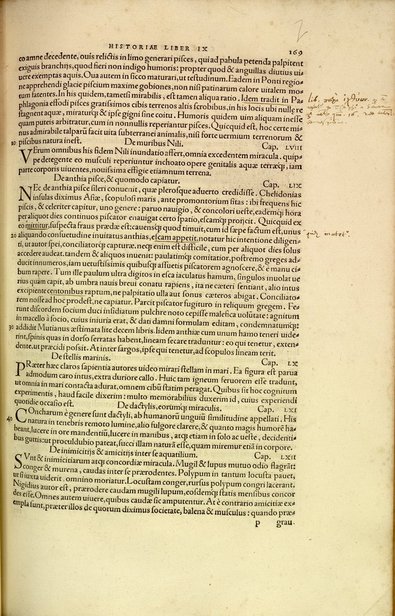 HISTORIAE LIBER IX 169
eo amne decedente, ouis relictis in limo generari pisces, qui ad pabula petenda palpitent
exiguis branchijs, quod fieri non indigo humoris: propter quod & anguillas diutius ui-
uere exemptas aquis. Oua autem in sicco maturari, ut testudinum. Eadem in Ponti regio-
ne apprehendi glacie piscium maxime gobiones, non nisi patinarum calore uitalem mo-
tum fatentes. In his quidem, tametsi mirabilis, est tamen aliqua ratio. Idem tradit in Pa-
phlagonia effodi pisces gratissimos cibis terrenos altis scrobibus, in his locis ubi nullæ re
stagnent aquæ, miraturq; & ipse gigni sine coitu. Humoris quidem uim aliquam inesse
quam puteis arbitratur, cum in nonnullis reperiantur pisces. Quicquid est, hoc certe mi-
nus admirabile talparū facit uita subterranei animalis, nisi forte uermium terrenorum &
piscibus natura inest. De muribus Nili. Cap. LVIII
VErum omnibus his fidem Nili inundatio affert, omnia excedentem miracula. quip-
pe detegente eo musculi reperiuntur inchoato opere genitalis aquæ terræq;, iam
parte corporis uiuentes, nouissima effigie etiamnum terrena.
De anthia pisce, & quomodo capiatur. Cap. LIX
NEc de anthia pisce sileri conuenit, quæ plerosque aduerto credidisse. Chelidonias
insulas diximus Asiæ, scopulosi maris, ante promontorium sitas: ibi frequens hic
piscis, & celeriter capitur, uno genere: paruo nauigio, & concolori ueste, eademq; hora
per aliquot dies continuos piscator enauigat certo spatio, escamq; proijcit. Quicquid ex
eo mittitur, suspecta fraus prædæ est: cauetq; quod timuit, cum id sæpe factum est, unus
aliquando consuetudine inuitatus anthias, escam appetit, notatur hic intentione diligen-
ti, ut autor spei, conciliatorq; capturæ. neq; enim est difficile, cum per aliquot dies solus
accedere audeat. tandem & aliquos inuenit: paulatimq; comitatior, postremo greges ad-
ducit innumeros, iam uetustissimis quibusq; assuetis piscatorem agnoscere, & è manu ci-
bum rapere. Tum ille paulum ultra digitos in esca iaculatus hamum, singulos inuolat ue
rius quam capit, ab umbra nauis breui conatu rapiens, ita ne cæteri sentiant, alio intus
excipiente centonibus raptum, ne palpitatio ulla aut sonus cæteros abigat. Conciliato-
rem nosse ad hoc prodest, ne capiatur. Parcit piscator fugituro in reliquum gregem. Fe-
runt discordem socium duci insidiatum pulchre noto cepisse malefica uoluntate: agnitum
in macello à socio, cuius iniuria erat, & dati damni formulam editam, condemnatumq;
addidit Mutianus æstimata lite decem libris. Idem anthiæ cum unum hamo teneri uide-
rint, spinis quas in dorso serratas habent, lineam secare traduntur: eo qui tenetur, exten-
dente, ut præcidi possit. At inter sargos, ipse qui tenetur, ad scopulos lineam terit.
De stellis marinis. Cap. LX
PRæter hæc claros sapientia autores uideo mirari stellam in mari. Ea figura est parua
admodum caro intus, extra duriore callo. Huic tam igneum feruorem esse tradunt,
ut omnia in mari contacta adurat, omnem cibū statim peragat. Quibus sit hoc cognitum
experimentis, haud facile dixerim: multo memorabilius duxerim id, cuius experiendi
quotidie occasio est. De dactylis, eorumq; miraculis. Cap. LXI
COncharum è genere sunt dactyli, ab humanorū unguiū similitudine appellati. His
natura in tenebris remoto lumine, alio fulgore clarere, & quanto magis humorē ha-
beant, lucere in ore mandentiū, lucere in manibus, atq; etiam in solo ac ueste, decidenti-
bus guttis: ut proculdubio pateat, succi illam naturā esse, quam miremur etiā in corpore.
De inimicitijs & amicitijs inter se aquatilium. Cap. LXII
SVnt & inimicitiarum atq; concordiæ miracula. Mugil & lupus mutuo odio flagrāt:
conger & murena, caudas inter se prærodentes. Polypum in tantum locusta pauet,
ut si iuxta uiderit omnino moriatur. Locustam conger, rursus polypum congri lacerant.
Nigidius autor est, prærodere caudam mugili lupum, eosdemq; statis mensibus concor
des esse. Omnes autem uiuere, quibus caudæ sic amputantur. At è contrario amicitiæ ex-
empla sunt, præter illos de quorum diximus societate, balena & musculus: quando præ-
p grau-